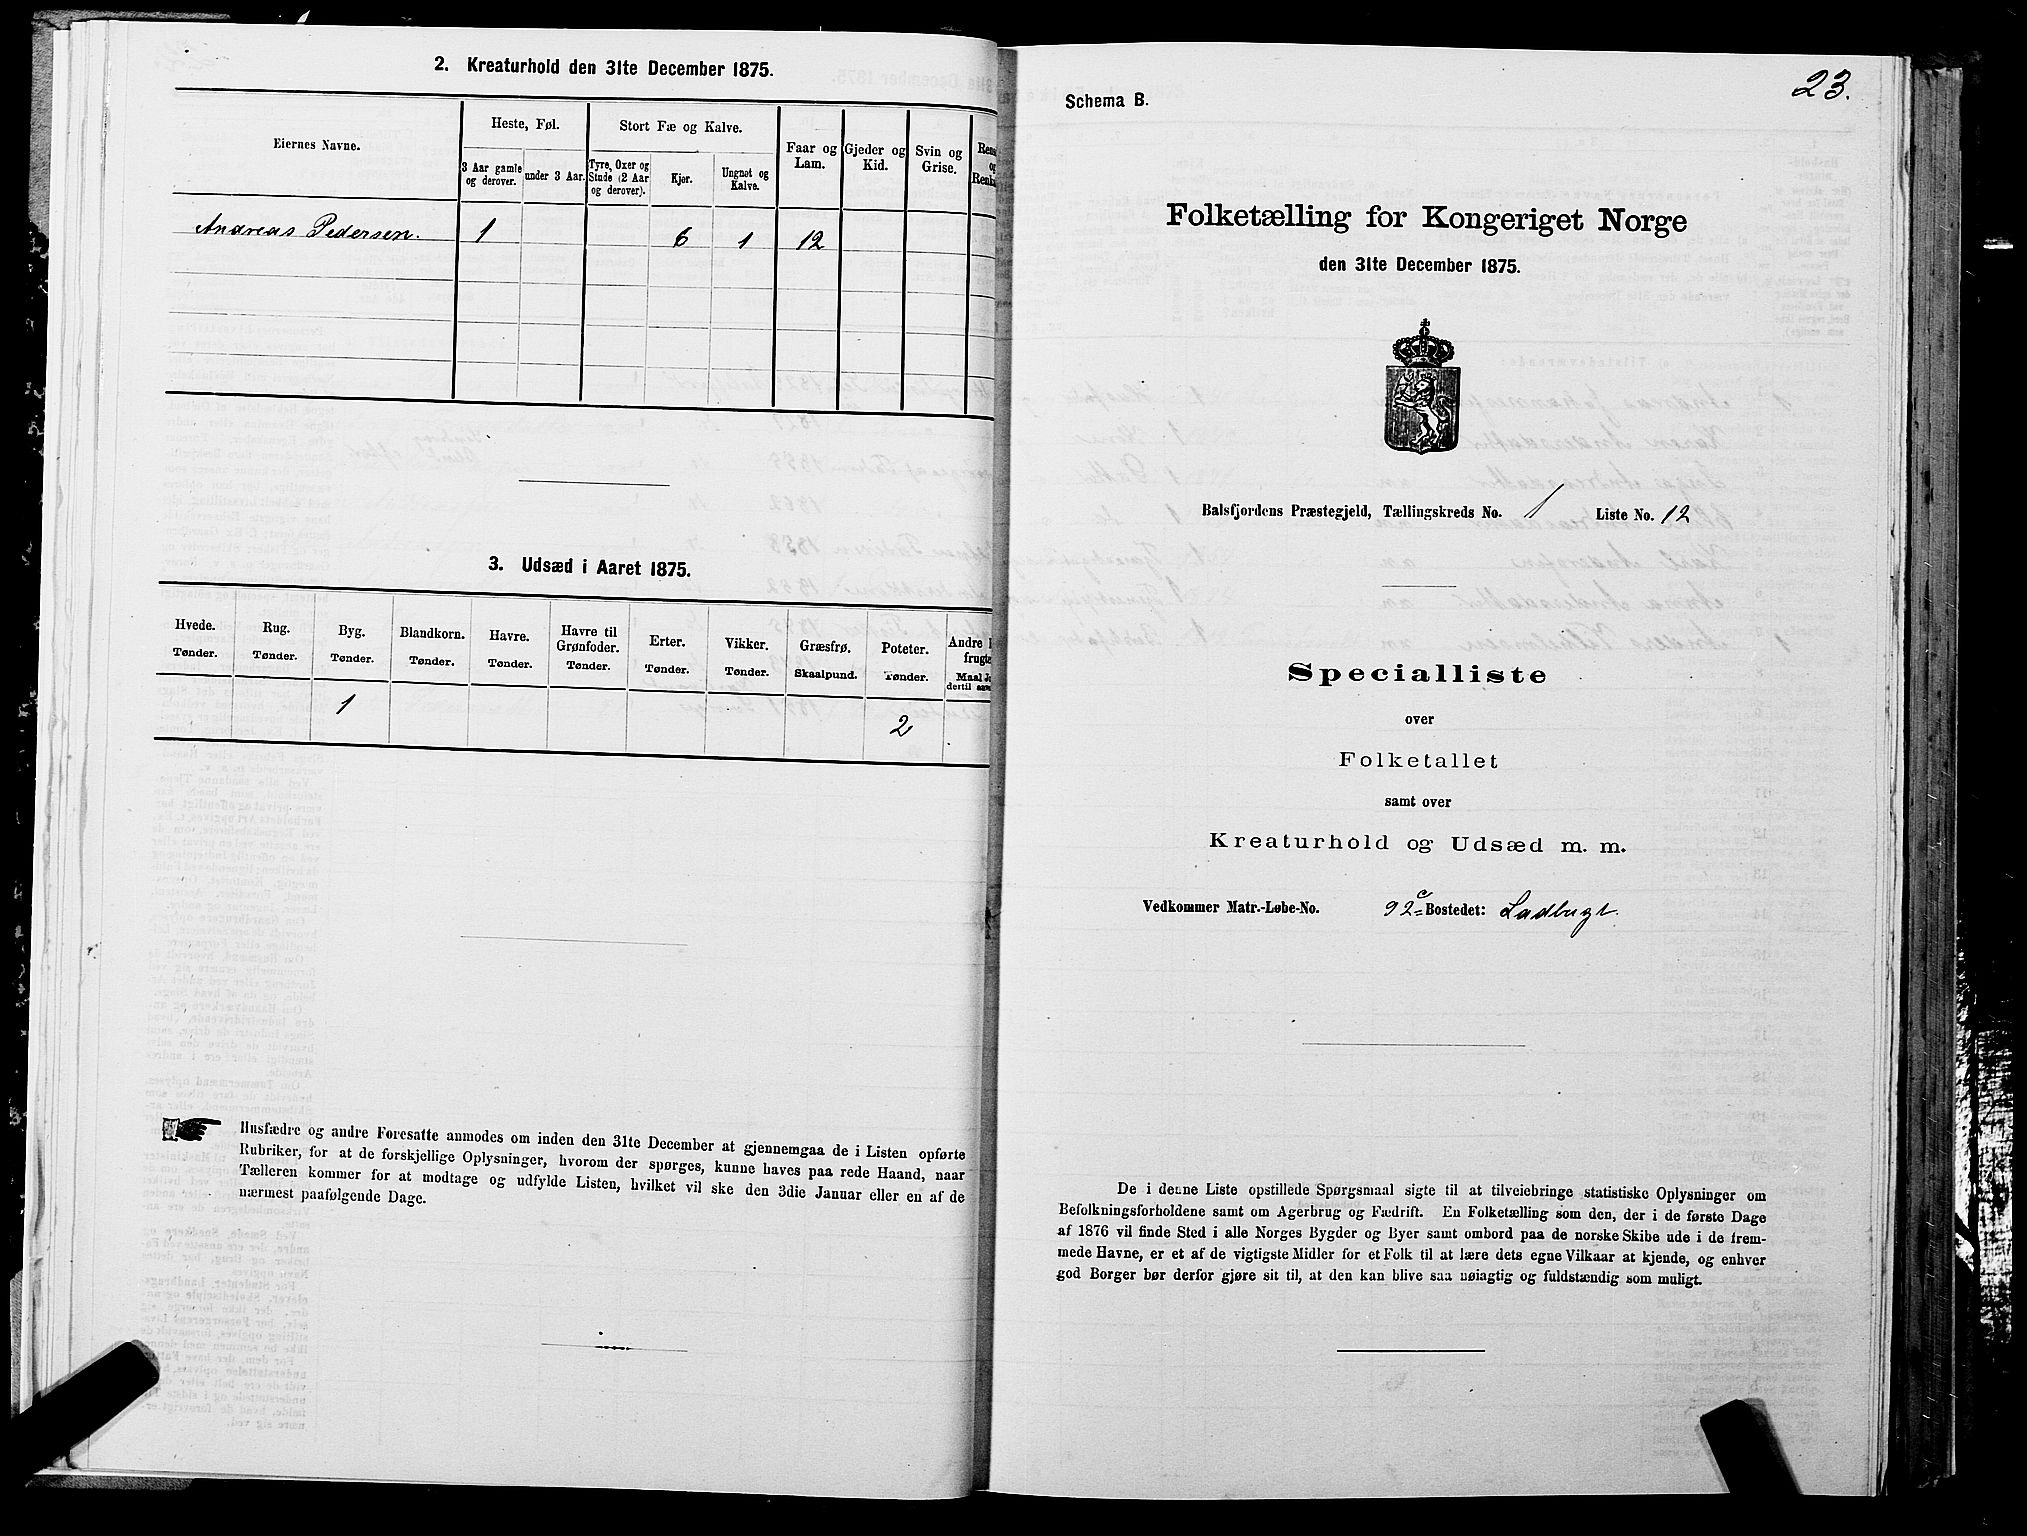 2. Kreaturhold den 31te December 1875.
Eiernes Navne.
Heste, Føl.
Stort Fæ og Kalve.
Faar og Lam.
Gjeder og Kid.
Svin og Grise.
3 Aar gamle og derover.
under 3 Aar.
Tyre, Oxer og Stude (2 Aar og derover).
Kjør.
Ungnøt og Kalve.
Andreas Pedersen. 1 6 1 12
3. Udsæd i Aaret 1875.
Hvede. Rug. Byg. Blandkorn. Havre. Havre til Grønfoder. Erter. Vikker. Græsfrø. Poteter. Andre
Tønder. Tønder. Tønder. Tønder. Tønder. Tønder. Tønder. Tønder. Skaalpund. Tønder.
1 2
Husfædre og andre Foresatte anmodes om inden den 31te December at gjennemgaa de i Listen opførte
Rubriker, for at de forskjellige Oplysninger, hvorom der spørges, kunne haves paa rede Haand, naar
Tælleren kommer for at modtage og udfylde Listen, hvilket vil ske den 3die Januar eller en af de
nærmest paafølgende Dage.
23.
Schema B.
Folketælling for Kongeriget Norge
den 31te December 1875.
Balsfjordens Præstegjeld, Tællingskreds No. 1 Liste No. 12
Specialliste
over
Folketallet
samt over
Kreaturhold og Udsæd m. m.
Vedkommer Matr.-Løbe-No. 92c Bostedet: Ladbugt.
De i denne Liste opstillede Spørgsmaal sigte til at tilveiebringe statistiske Oplysninger om
Befolkningsforholdene samt om Agerbrug og Fædrift. En Folketælling som den, der i de første Dage
af 1876 vil finde Sted i alle Norges Bygder og Byer samt ombord paa de norske Skibe ude i de frem-
mede Havne, er et af de vigtigste Midler for et Folk til at lære dets egne Vilkaar at kjende, og enhver
god Borger bør derfor gjøre sit til, at den kan blive saa nøiagtig og fuldstændig som muligt.